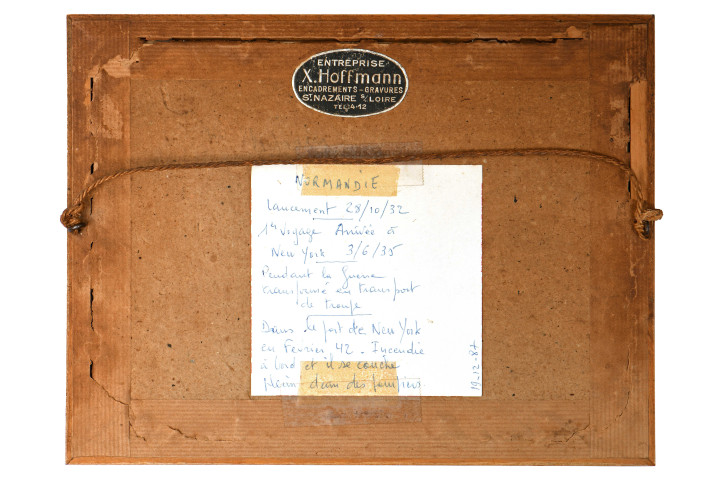 ENTREPRISE
X. Hoffmann
ENCADREMENTS - GRAVURES
ST NAZAIRE S/LOIRE
TEL: 4-12
NORMANDIE
Lancement 28/10/32
1er Voyage Arrivée à
New York 3/6/35
Pendant la Guerre
transformé en transport
de troupe
Dans le port de New York
en Février 42. Incendie
à bord et il se couche
plein d'eau des pompiers
19-12-87